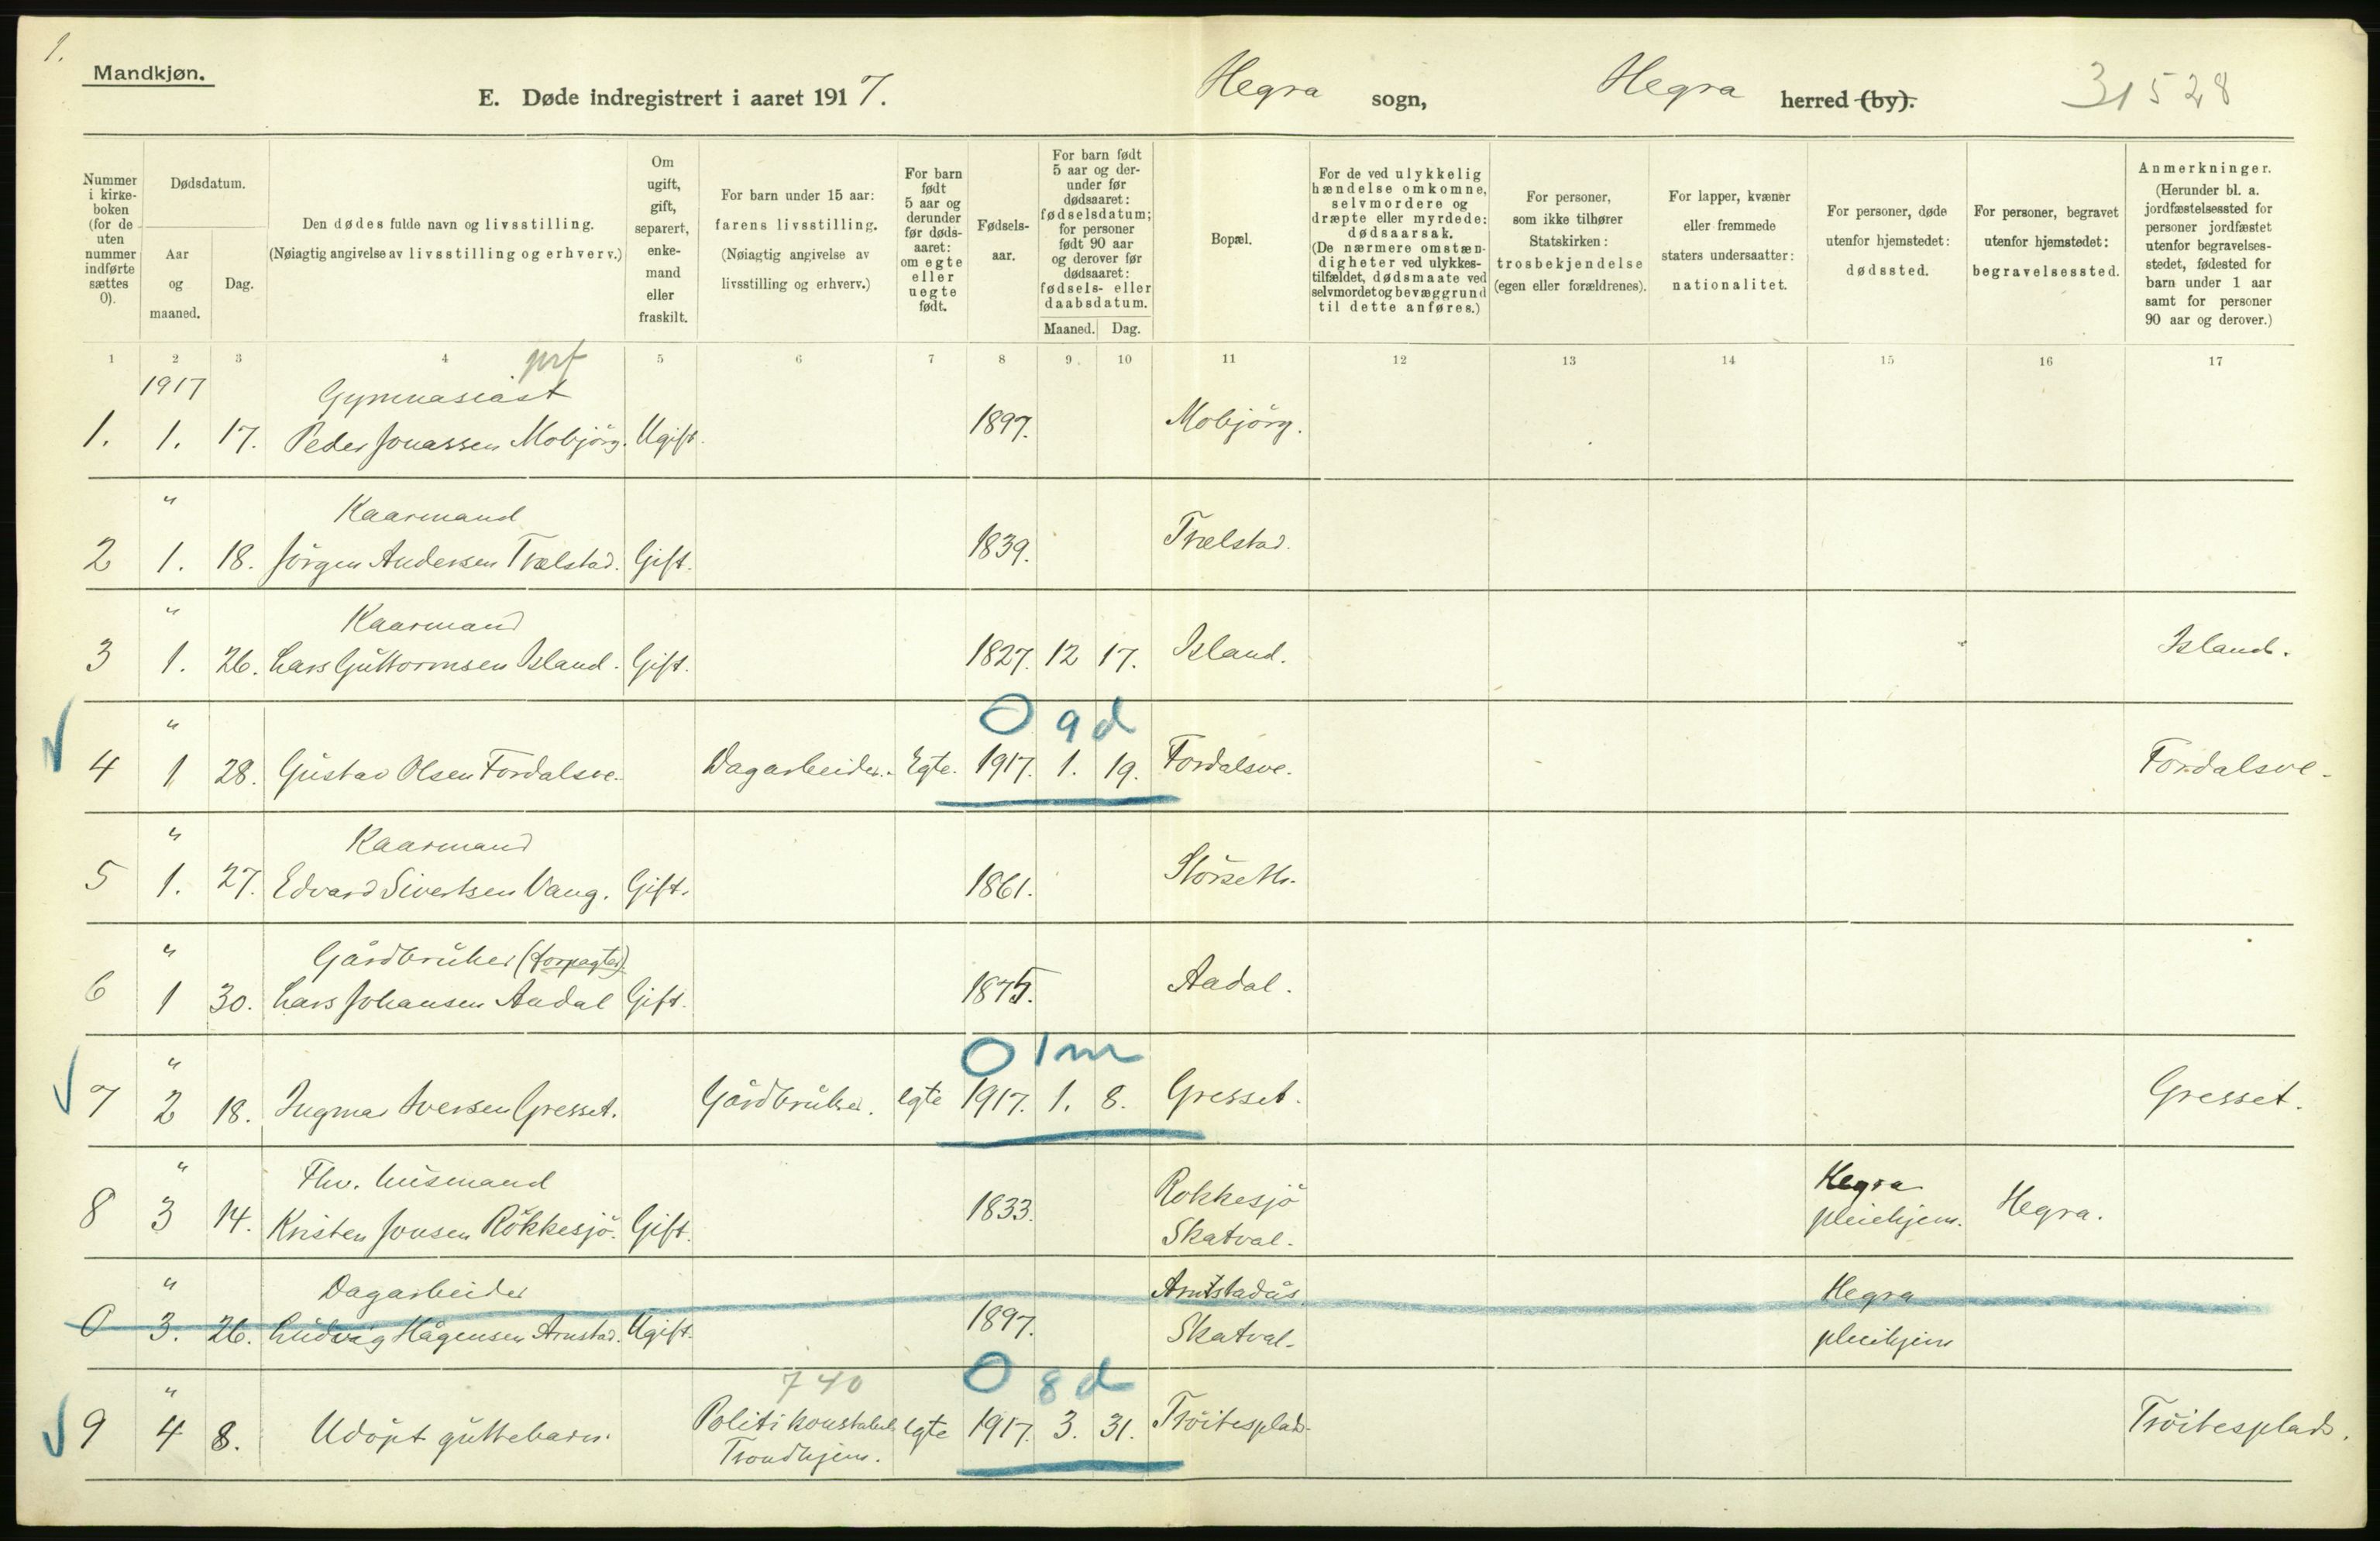 1.
Mandkjøn.
E. Døde indregistrert i aaret 1917. Hegra sogn, Hegra herred (by). 31528
Nummer i kirke-boken (for de uten nummer indførte sættes 0).
Dødsdatum.
Aar og maaned.
Dag.
Den dødes fulde navn og livsstilling.
(Nøiagtig angivelse av livsstilling og erhverv.)
Om ugift, gift, separert, enke-mand eller fraskilt.
For barn under 15 aar: farens livsstilling.
(Nøiagtig angivelse av livsstilling og erhverv.)
For barn født 5 aar og derunder før døds-aaret: om egte eller uegte født.
Fødsels-aar.
For barn født 5 aar og der-under før dødsaaret: fødselsdatum; for personer født 90 aar og derover før dødsaaret: fødsels- eller daabsdatum.
Maaned. Dag.
Bopæl.
For de ved ulykkelig hændelse omkomne, selvmordere og dræpte eller myrdede: dødsaarsak.
(De nærmere omstæn-digheter ved ulykkes-tilfældet, dødsmaate ved selvmordet og bevæggrund til dette anføres.)
For personer, som ikke tilhører Statskirken: trosbekjendelse (egen eller forældrenes).
For lapper, kvæner eller fremmede staters undersaatter: nationalitet.
For personer, døde utenfor hjemstedet: dødssted.
For personer, begravet utenfor hjemstedet: begravelsessted.
Anmerkninger.
(Herunder bl. a. jordfæstelsessted for personer jordfæstet utenfor begravelses-stedet, fødested for barn under 1 aar samt for personer 90 aar og derover.)
1 2 3 4 5 6 7 8 9 10 11 12 13 14 15 16 17
1917 Gymnasiast
1. 1. 17. Peder Jonassen Mobjörg. Ugift. 1897. Mobjörg.
" Kaarmand
2 1. 18. Jörgen Andersen Trælstad. Gift. 1839. Trælstad.
" Kaarmand
3 1. 26. Lars Guttormsen Island. Gift. 1827. 12 17. Island. Island.
" 0 9 d
4 1 28. Gustav Olsen Fordalsve. Dagarbeider. Egte. 1917. 1. 19. Fordalsve. Fordalsve.
" Kaarmand
5 1. 27. Edvard Sivertsen Vang. Gift. 1861. Störseth.
" Gårdbruker (forpagter)
6 1 30. Lars Johansen Aadal Gift. 1875. Aadal.
" 0 1 m
7 2 18. Ingmar Iversen Gresset. Gårdbruker. egte 1917. 1. 8. Gresset. Gresset.
" Fhv. husmand Rokkesjö Hegra
8 3 14. Kristen Jonsen Rökkesjö. Gift. 1833. Skatval. pleiehjem. Hegra.
" Dagarbeider Hegra
0 3. 26. Ludvig Hågensen Arnstad. Ugift. 1897. Skatval. pleiehjem
" 740 0 8 d
9 4 8. Udöpt guttebarn. Politikonstabel egte 1917. 3. 31. Tröitesplads. Tröitesplads.
Trondhjem.